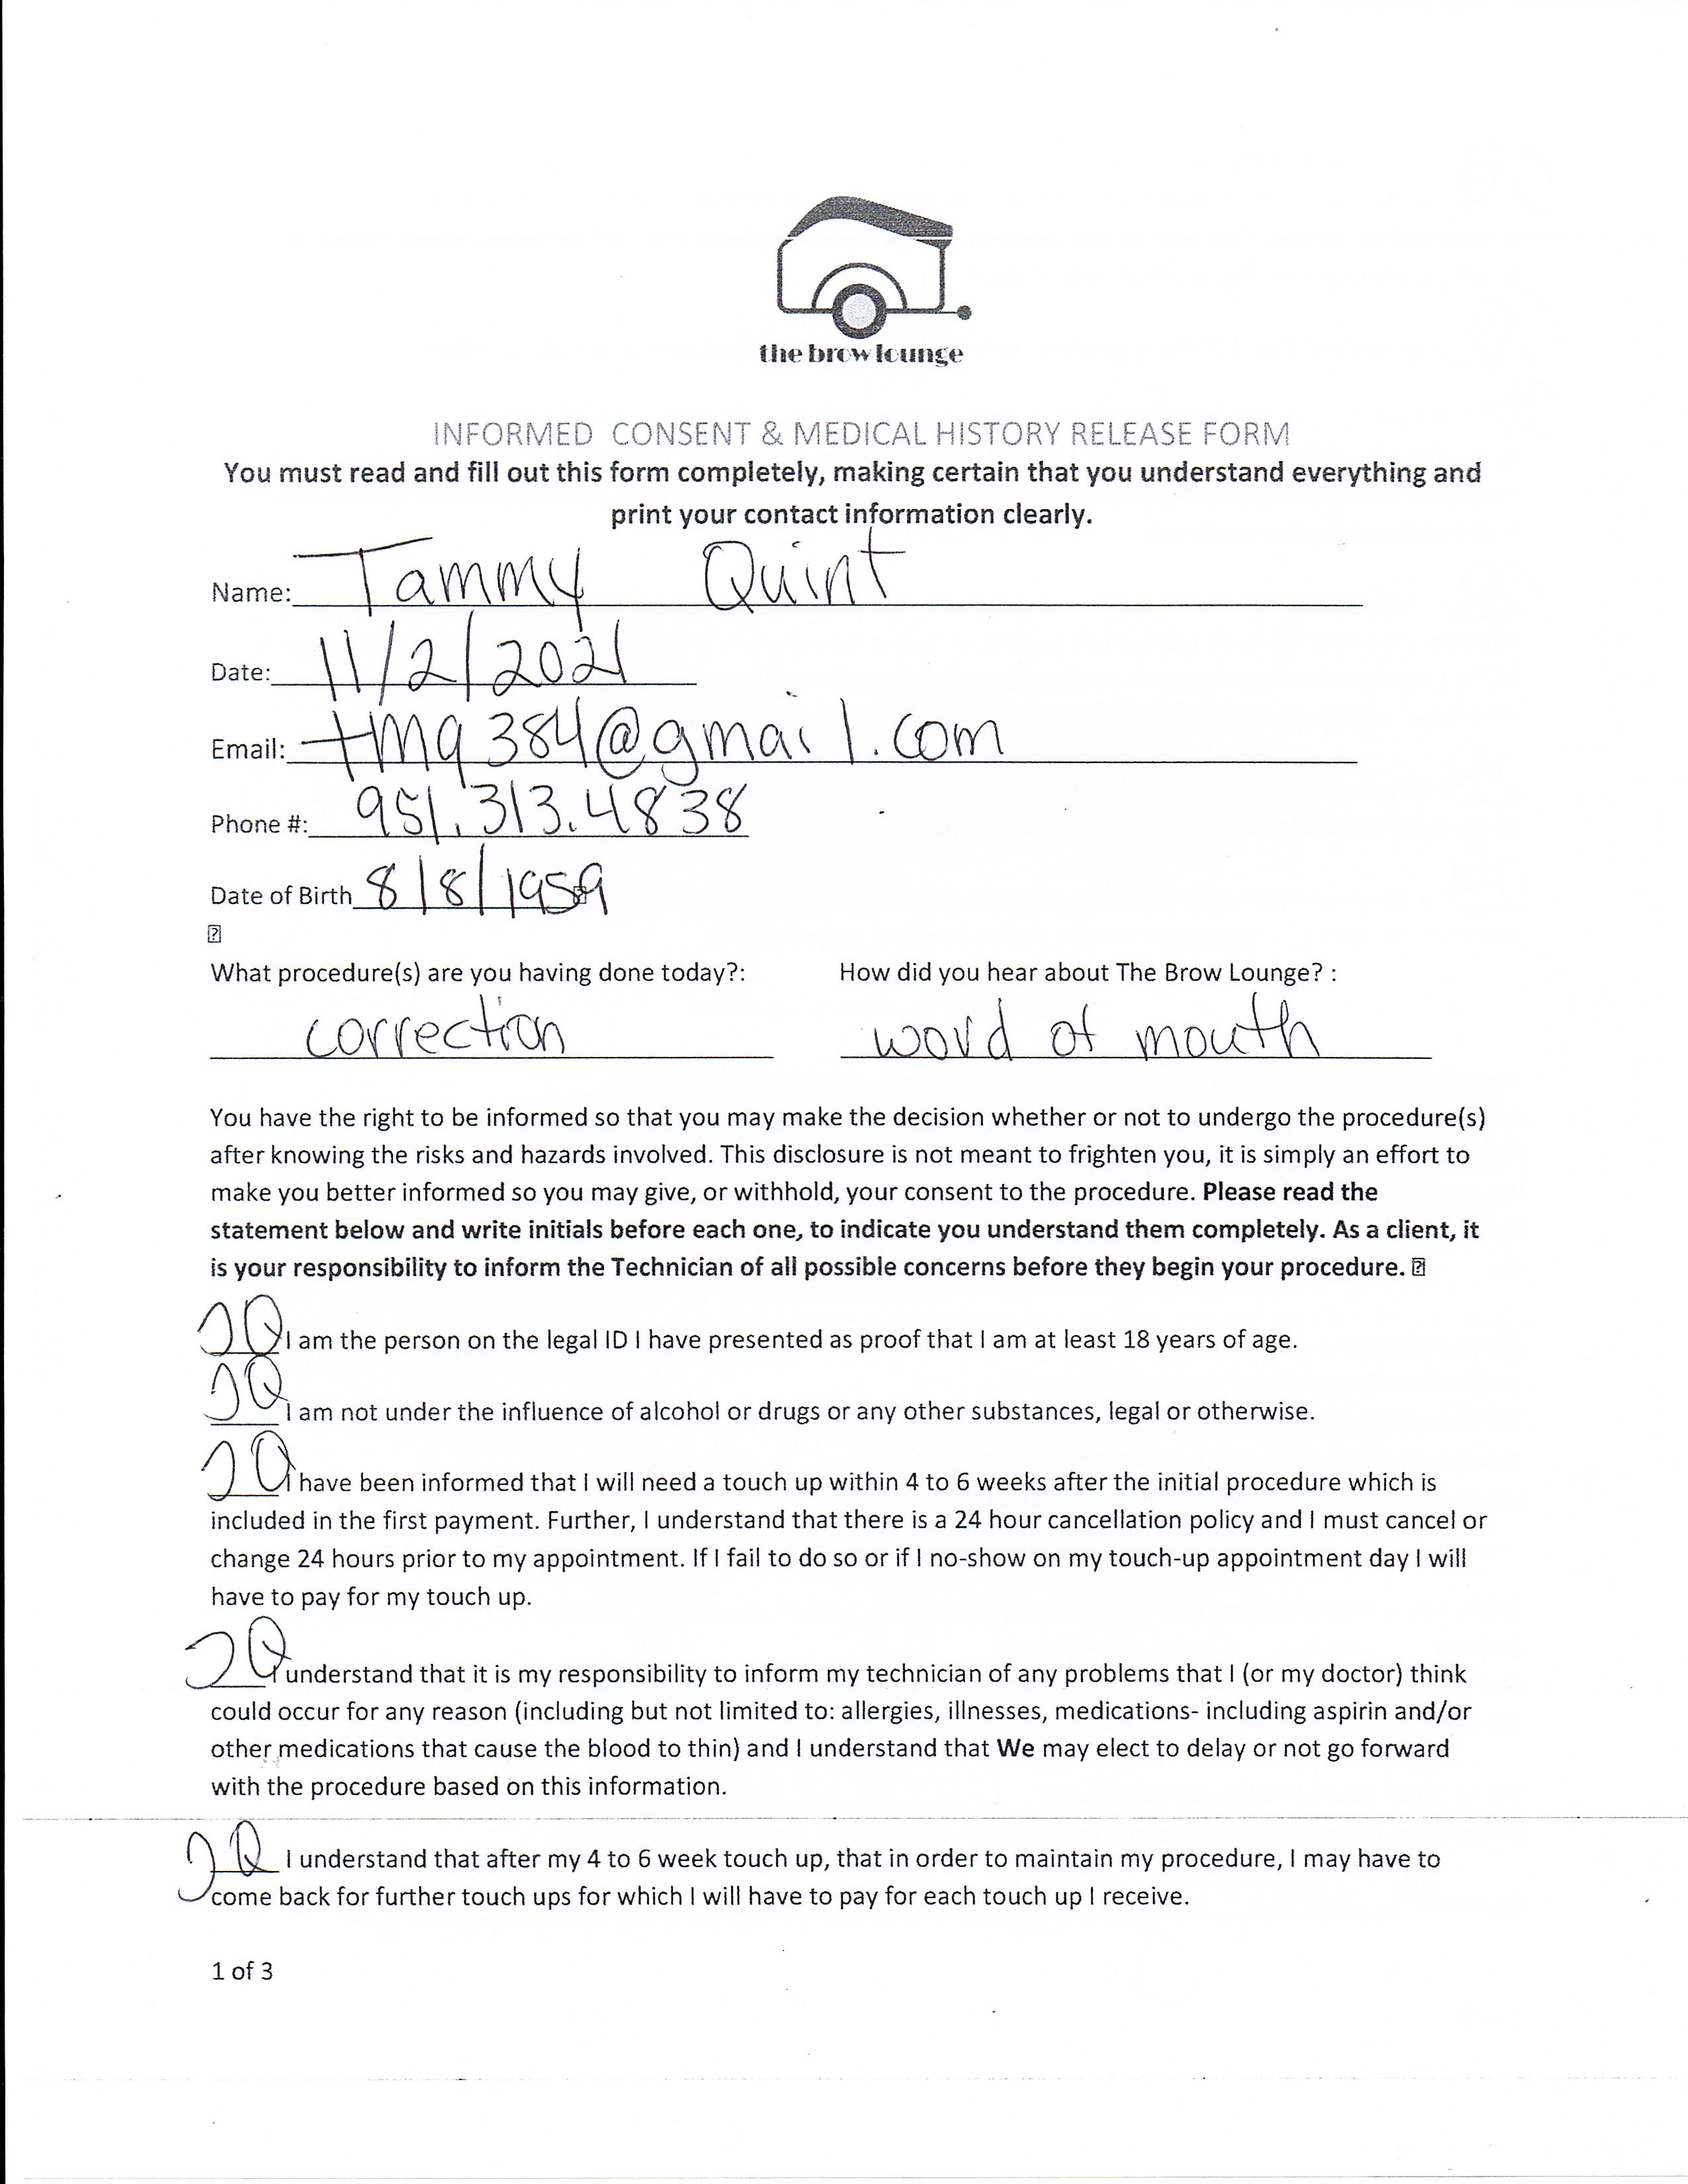 the brow lounge
INFORMED CONSENT & MEDICAL HISTORY RELEASE FORM
You must read and fill out this form completely, making certain that you understand everything and
print your contact information clearly.
Name: Tammy Quint
Date: 11/2/2021
Email: tmq384@gmail.com
Phone #: 951.313.4838
Date of Birth 8/8/1959
What procedure(s) are you having done today?: How did you hear about The Brow Lounge? :
correction word of mouth
You have the right to be informed so that you may make the decision whether or not to undergo the procedure(s)
after knowing the risks and hazards involved. This disclosure is not meant to frighten you, it is simply an effort to
make you better informed so you may give, or withhold, your consent to the procedure. Please read the
statement below and write initials before each one, to indicate you understand them completely. As a client, it
is your responsibility to inform the Technician of all possible concerns before they begin your procedure.
JQ I am the person on the legal ID I have presented as proof that I am at least 18 years of age.
JQ I am not under the influence of alcohol or drugs or any other substances, legal or otherwise.
JQ I have been informed that I will need a touch up within 4 to 6 weeks after the initial procedure which is
included in the first payment. Further, I understand that there is a 24 hour cancellation policy and I must cancel or
change 24 hours prior to my appointment. If I fail to do so or if I no-show on my touch-up appointment day I will
have to pay for my touch up.
JQ I understand that it is my responsibility to inform my technician of any problems that I (or my doctor) think
could occur for any reason (including but not limited to: allergies, illnesses, medications- including aspirin and/or
other medications that cause the blood to thin) and I understand that We may elect to delay or not go forward
with the procedure based on this information.
JQ I understand that after my 4 to 6 week touch up, that in order to maintain my procedure, I may have to
come back for further touch ups for which I will have to pay for each touch up I receive.
1 of 3